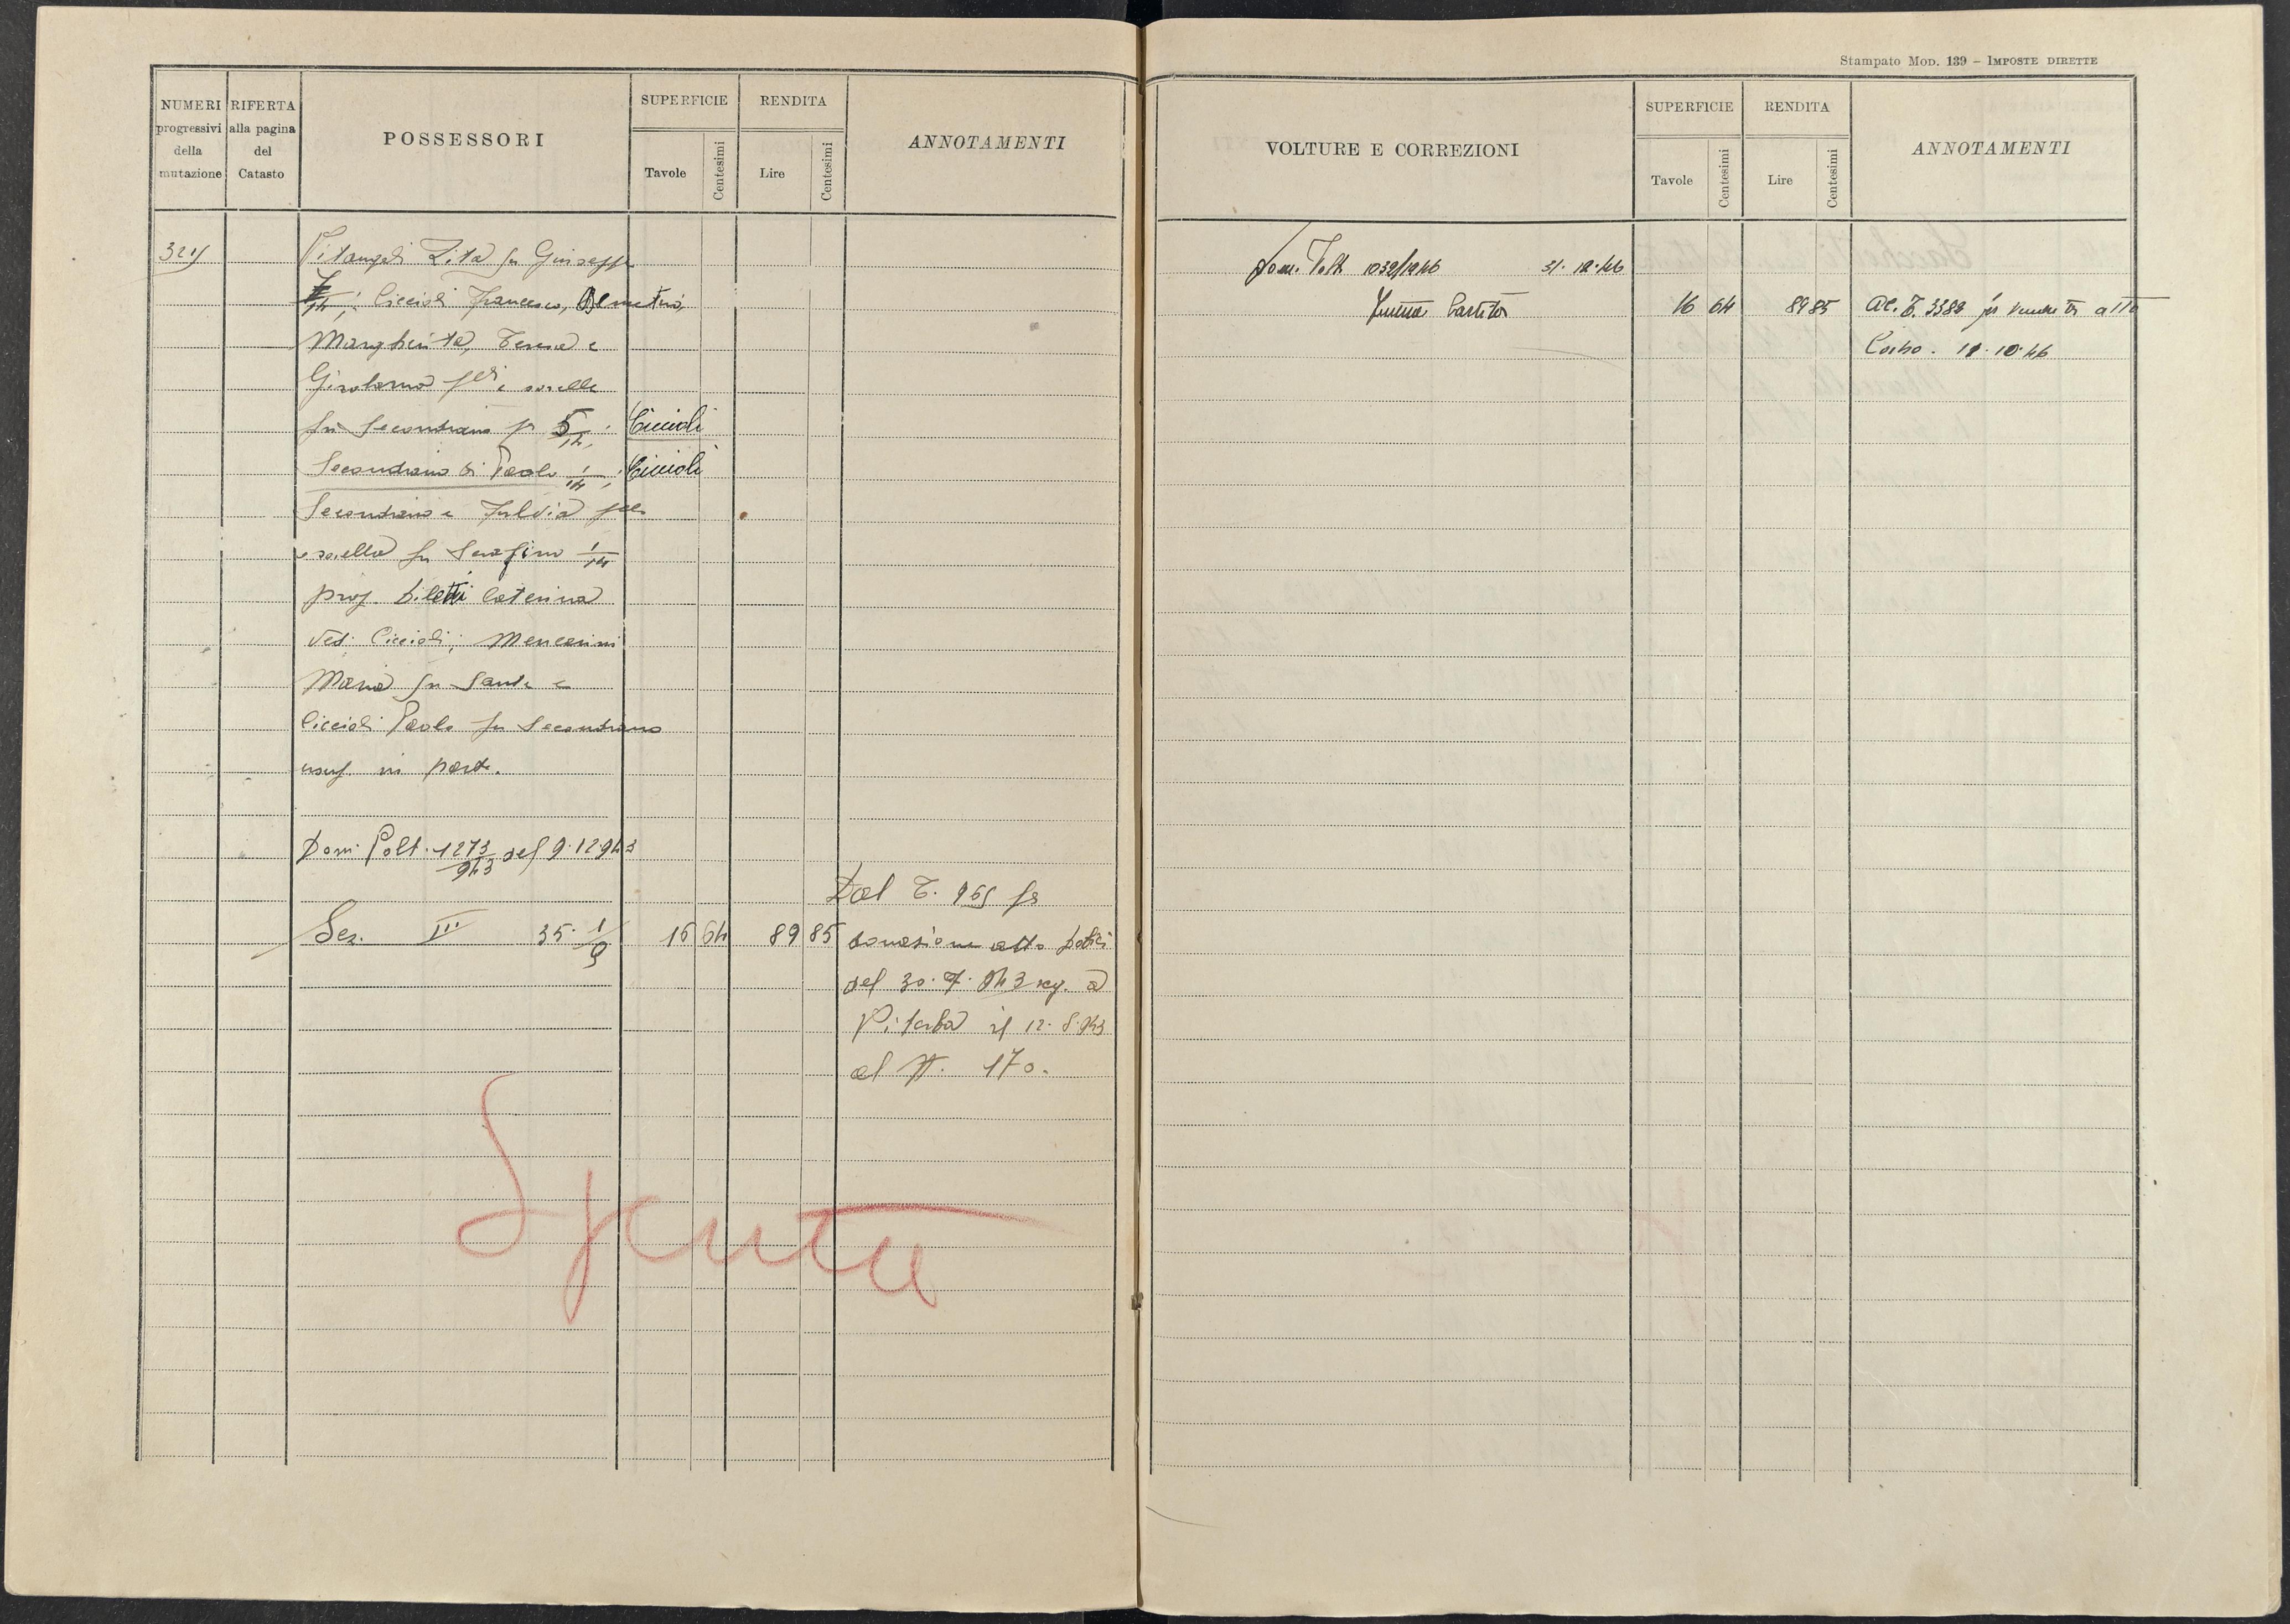 NUMERI progressivi della mutazione
RIFERTA alla pagina del Catasto
POSSESSORI
SUPERFICIE
Tavole
Centesimi
RENDITA
Lire
Centesimi
ANNOTAMENTI
Vitangeli Zita fu Giuseppe
7/14; Ciccioli Francesco,
Margherita, Teresa e
Girolama f.lli e sorelle
fu Secondiano p 5/14; Ciccioli
Secondiano di Paolo 1/14; Ciccioli
Secondiano e Fulvia f.llo
e sorella fu Serafino 1/14
prop. Diletti Caterina
ved. Ciccioli; Mencarini
Maria fu Sante e
Ciccioli Paolo fu Secondiano
usuf. in parte.
Dom. Volt. 1273/943 del 9.12.943
Dal T. 965 per
Sez. III 35. 1/9 16 64 89 85 donazione atto
del 30.7.943 reg. a
Viterbo il 12.8.943
al N. 170.
Spenta
Stampato Mod. 139 – IMPOSTE DIRETTE
VOLTURE E CORREZIONI
SUPERFICIE
Tavole
Centesimi
RENDITA
Lire
Centesimi
ANNOTAMENTI
Dom. Volt. 1032/1946 31.12.46
Intera Partita 16 64 89 85 Al. T. 3382 per vendita atto
11.10.46